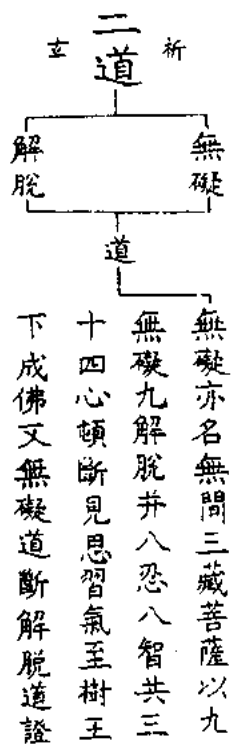 二道
祈玄
無礙
解脫
道
無礙亦名無間三藏菩薩以九
無礙九解脫并八忍八智共三
十四心頓斷見思習氣至樹王
下成佛又無礙道斷解脫道證